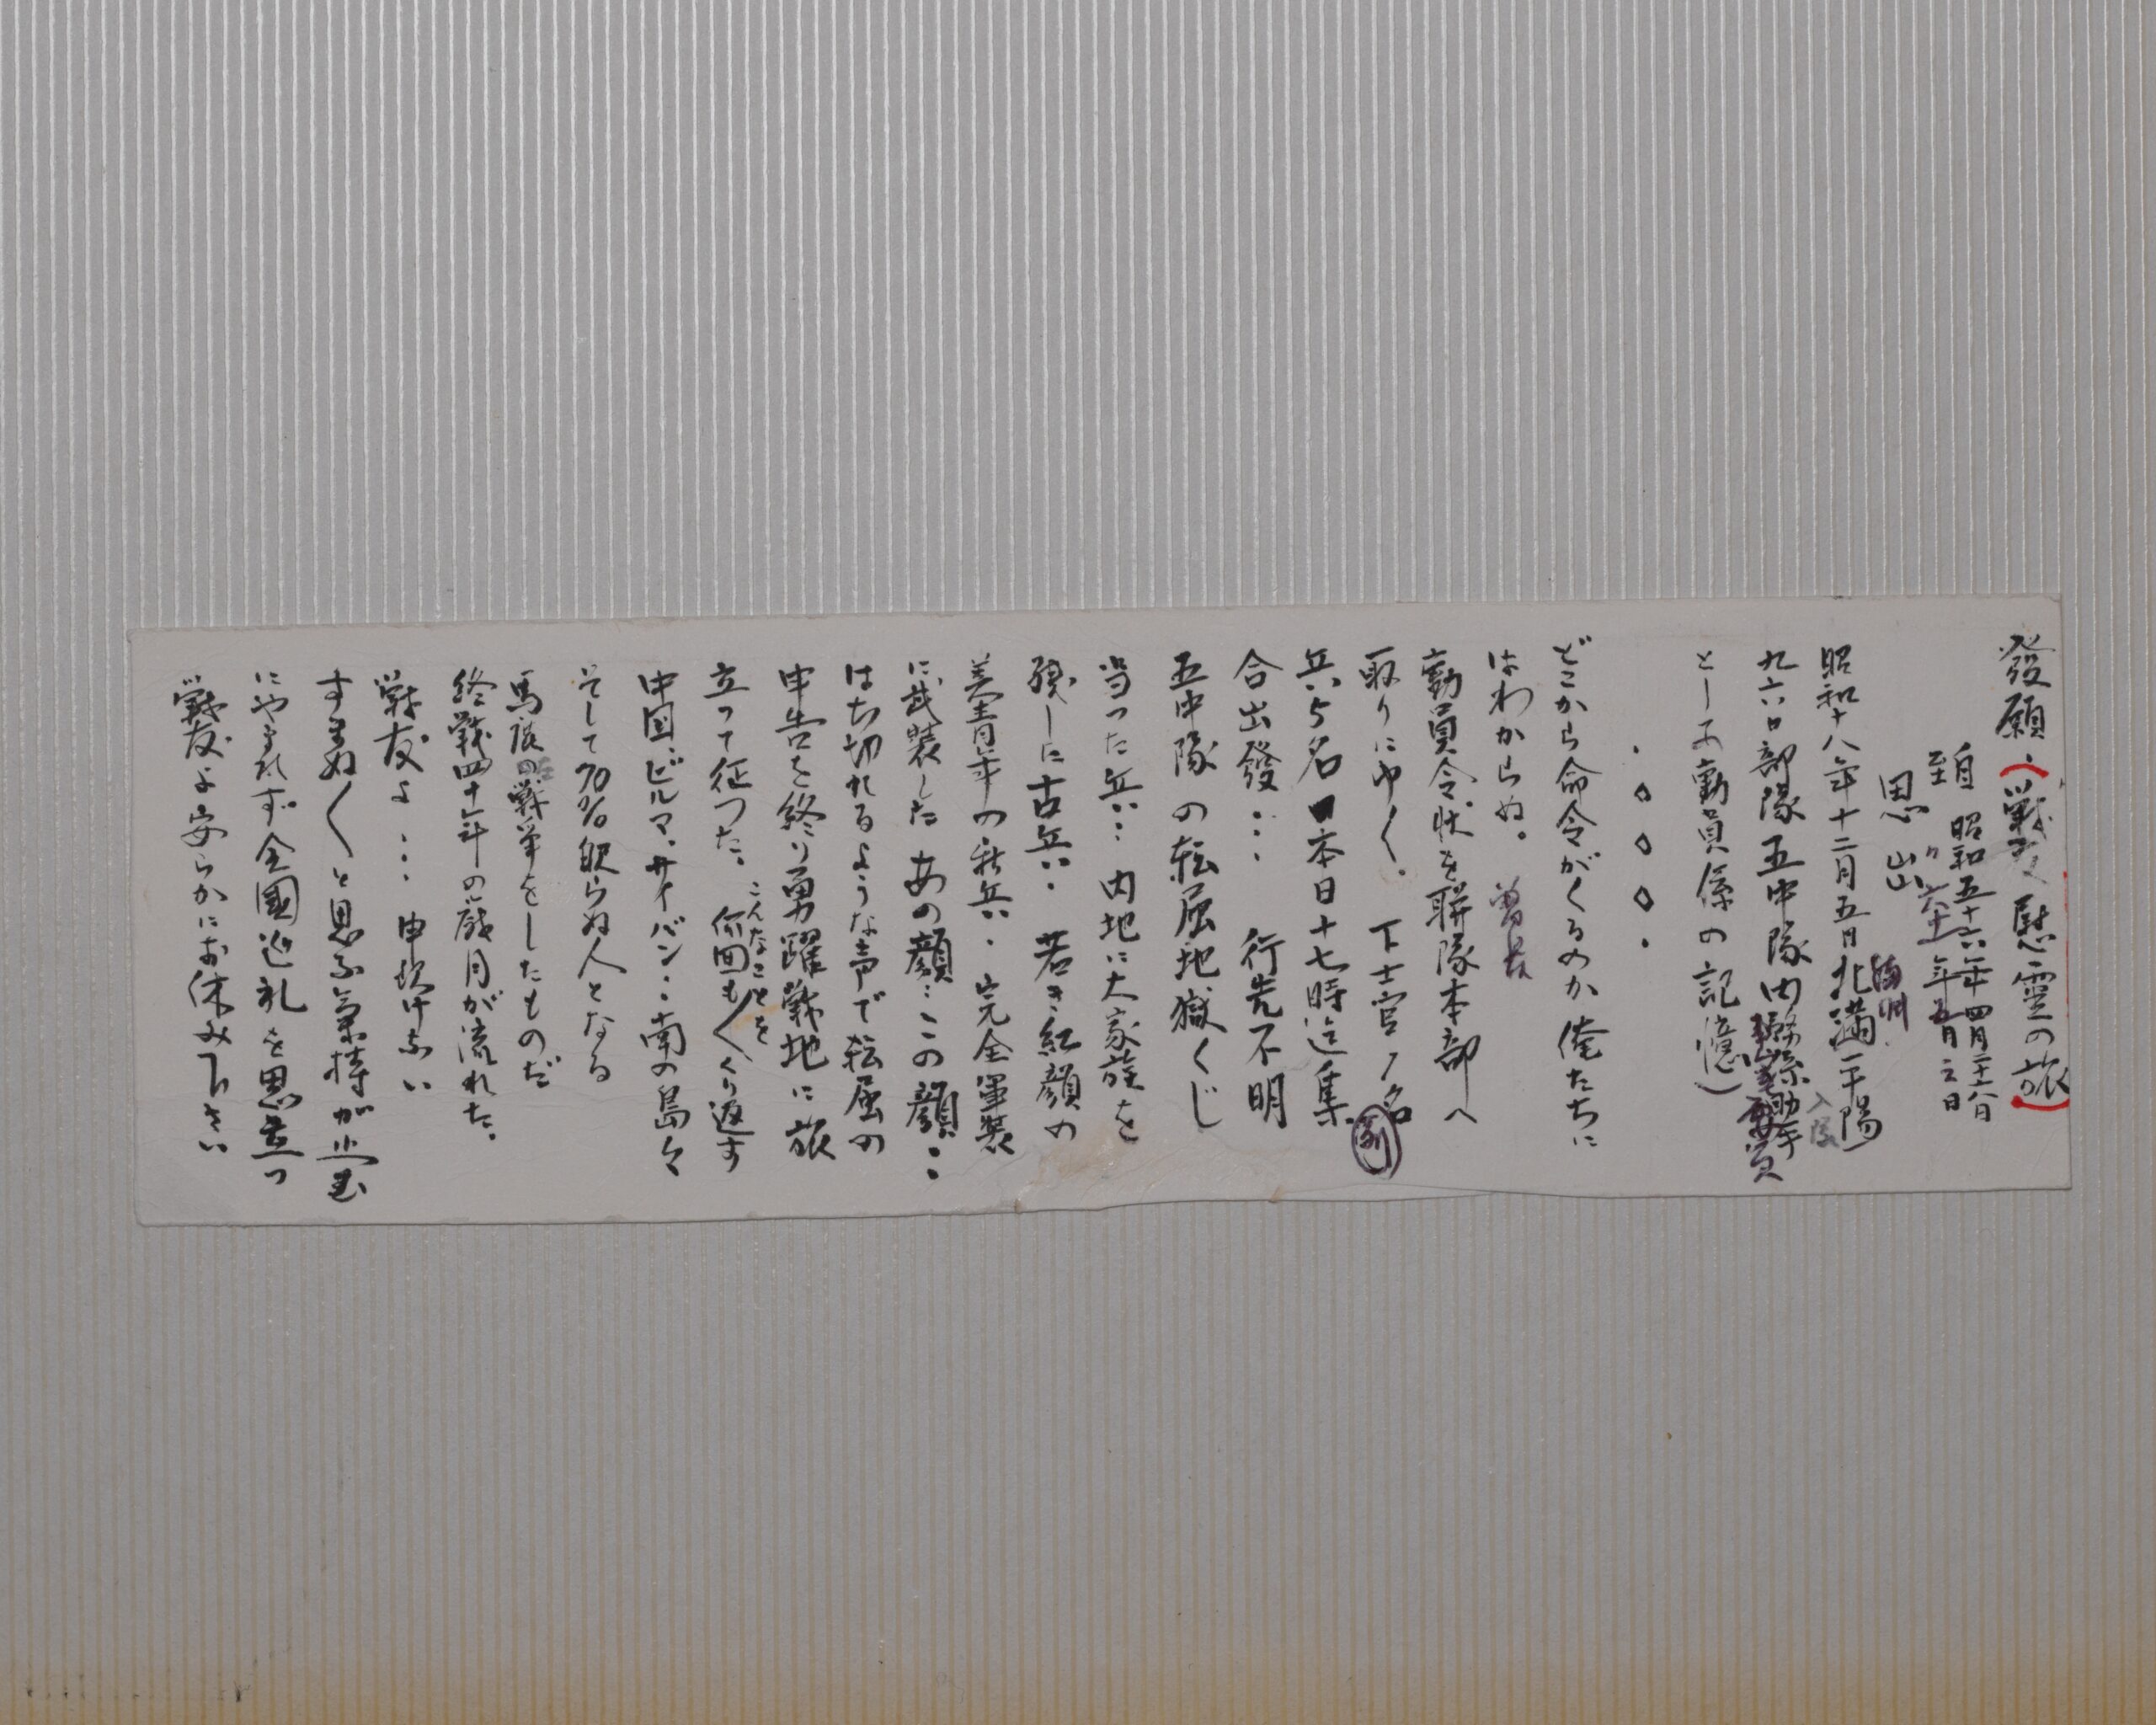 發願(戦友慰霊の旅)
自 昭和五十六年四月二十六日
至 〃 六十一年五月三日
思 出
昭和十八年十二月五日北満 平陽 入隊
九六〇部隊五中隊内務係助手
として動員係の記憶)
・。。。・
どこから命令がくるのか俺たちに
はわからぬ。 曽長
動員令状を聯隊本部へ
取りにゆく。 下士官1名
兵5名 本日十七時迄集
合出發… 行先不明
五中隊の転属地獄くじ
当った兵… 内地に大家族を
残しに古兵・ 若き紅顔の
美青年の新兵・ 完全軍装
に武装した あの顔…この顔…
はち切れるような声で転属の
申告を終り勇躍戦地に旅
立って征った。 こんなことを 何回も〱くり返す
中国、ビルマ、サイパン…南の島々
そして70%帰らぬ人となる
馬鹿の戦争をしたものだ
終戦四十年の歳月が流れた。
戦友よ… 申訳けない
すまぬ〱と思ふ気持が
にやまれず全國巡礼を思立つ
戦友よ安らかにお休み下さい